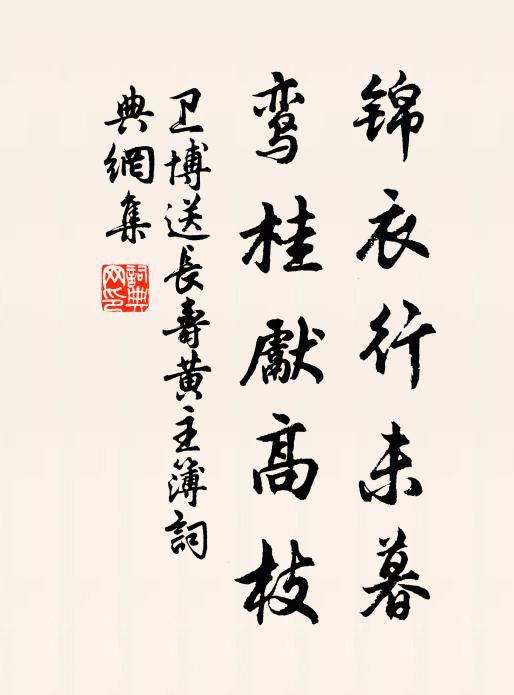 锦衣行未暮
鸾桂獻高枝
卫博送長壽黄主簿詞
典網集
詞典
网印